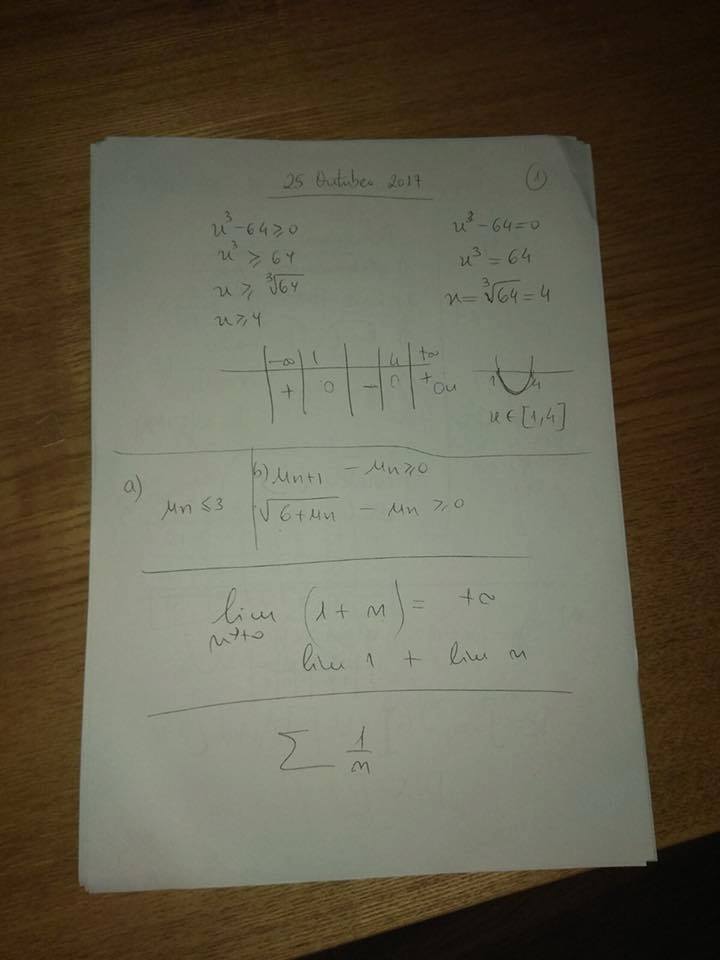 25 Outubro 2017 1
x³-64≥0
x³ ≥ 64
x ≥ ³√64
x≥4
x³-64=0
x³ = 64
x=³√64=4
-∞ 1 4 +∞
+ 0 - 0 +
ou
1 4
x ∈ [1,4]
a) un ≤3
b) un+1 - un≥0
√6+un - un ≥0
lim (1+n) = +∞
n→+∞
lim 1 + lim n
∑ 1/n